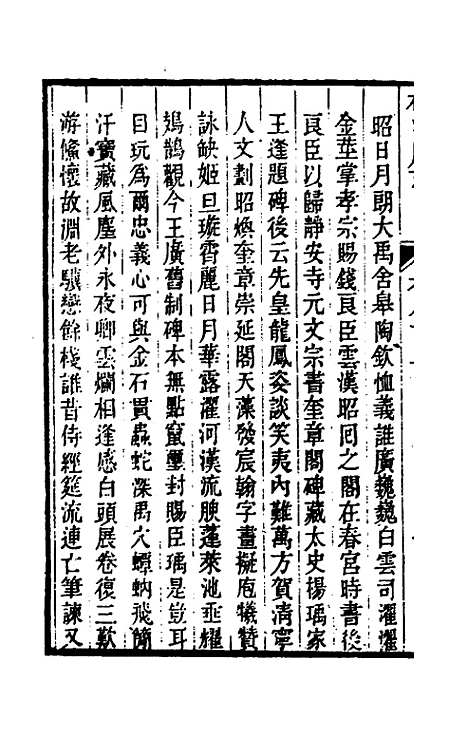 昭日月朗大禹舍皋陶欽恤義誰廣巍巍白雲司濯濯
金莖掌孝宗賜錢良臣雲漢昭囘之閣在春宮時書後
良臣以歸靜安寺元文宗書奎章閣碑藏太史揚瑀家
王逢題碑後云先皇龍鳳姿談笑夷內難萬方賀淸寧
人文劃昭煥奎章崇延閣天藻發宸翰字畫擬庖犧贊
詠缺姬旦璇霄麗日月華露濯河漢流腴蓬萊池垂耀
鳷鵲觀今王廣舊制碑本無點竄璽封賜臣瑀是豈耳
目玩為爾忠義心可與金石貫蟲蛇深禹穴蟫蚋飛簡
汗寶藏風塵外永夜卿雲爛相逢感白頭展卷復三歎
游鯈懷故淵老驥戀餘棧誰昔侍經筵流連亡筆諫又